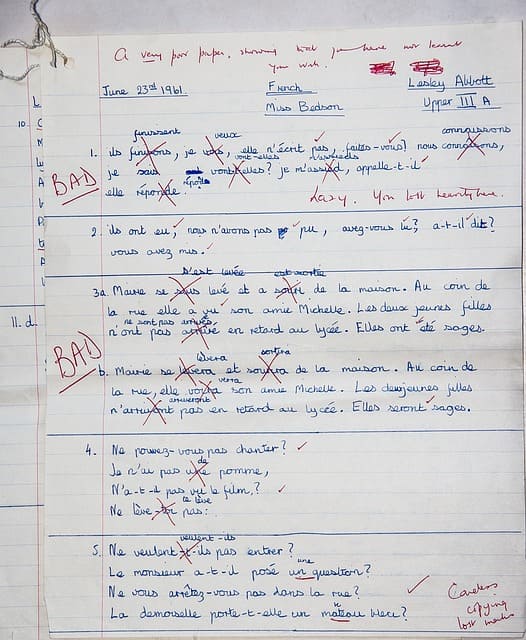 A very poor paper, showing that you have not learnt
your work.
June 23rd 1961. French Lesley Abbott
Miss Bedson Upper III A
finissent veux connaissons
1. ils finirons, je vous, elle n'écrit pas, faites-vous! nous connaissons,
vont-elles m'assieds
je sais vont-t-elles? je m'assied, appelle-t-il
répond
elle réponde.
BAD
Lazy. You lost heavily here.
2. ils ont eu, nous n'avons pas pu, avez-vous lu? a-t-il dit?
vous avez mis.
s'est levée est sortie
3a. Marie se sous levé et a sorti de la maison. Au coin de
la rue elle a vu son amie Michelle. Les deux jeunes filles
ne sont pas arrivés
n'ont pas arrivé en retard au lycée. Elles ont été sages.
BAD
lèvera sortira
b. Marie se lèvera et sortira de la maison. Au coin de
verra
la rue, elle voira son amie Michelle. Les deux jeunes filles
arriveront
n'arriront pas en retard au lycée. Elles seront sages.
4. Ne pouvez-vous pas chanter?
de
Je n'ai pas une pomme,
N'a-t-il pas vu le film?
te lève
Ne lève-toi pas:
veulent-ils
5. Ne veulent-t-ils pas entrer?
une
Le monsieur a-t-il posé un question?
Ne vous arrêtez-vous pas dans la rue?
La demoiselle porte-t-elle un mateau bleu?
Careless
copying
lost marks
10.
11. d.